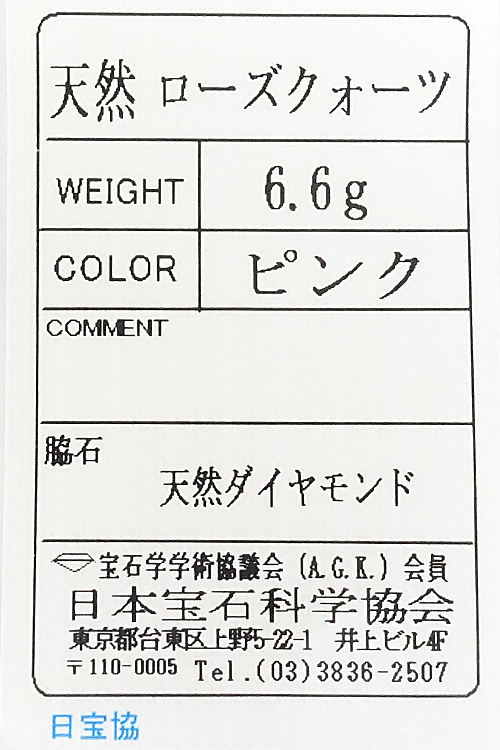 天然 ローズクォーツ
WEIGHT 6.6g
COLOR ピンク
COMMENT
脇石
天然ダイヤモンド
宝石学学術協議会 (A.G.K.) 会員
日本宝石科学協会
東京都台東区上野5-22-1 井上ビル4F
〒110-0005 Tel.(03)3836-2507
日宝協